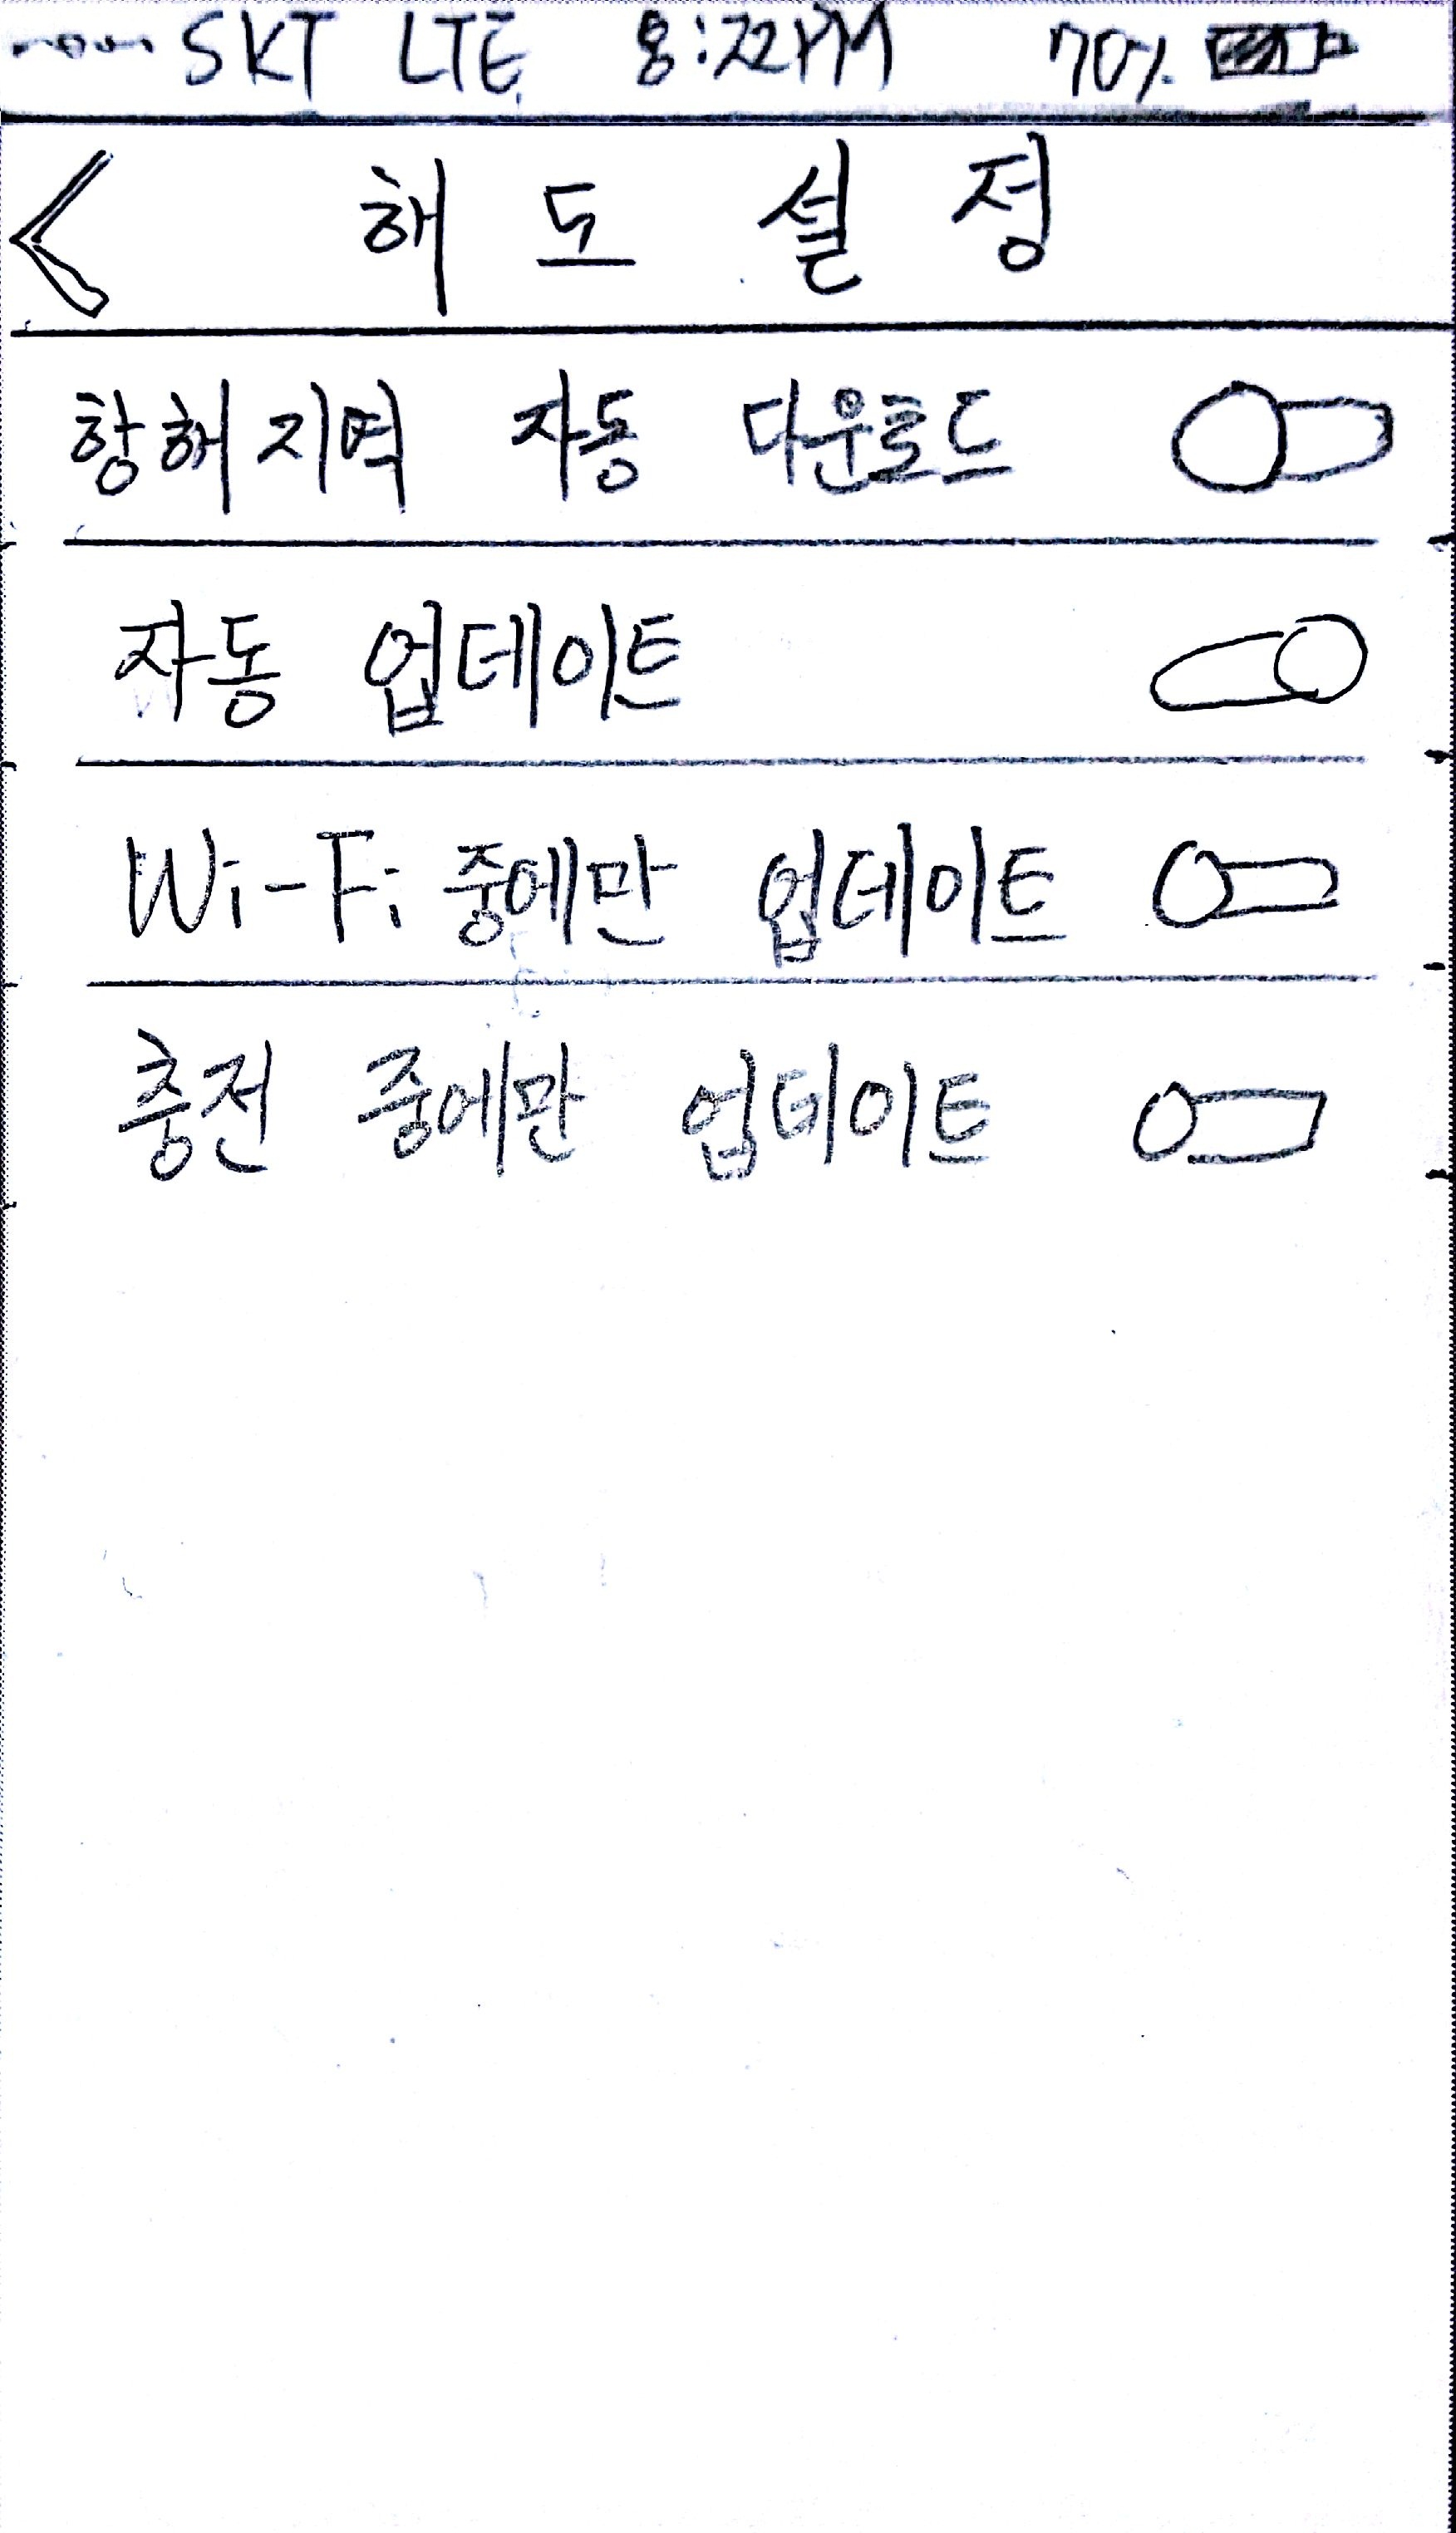 SKT LTE 8:22PM 70%
해도 설정
항해지역 자동 다운로드
자동 업데이트
Wi-Fi 중에만 업데이트
충전 중에만 업데이트